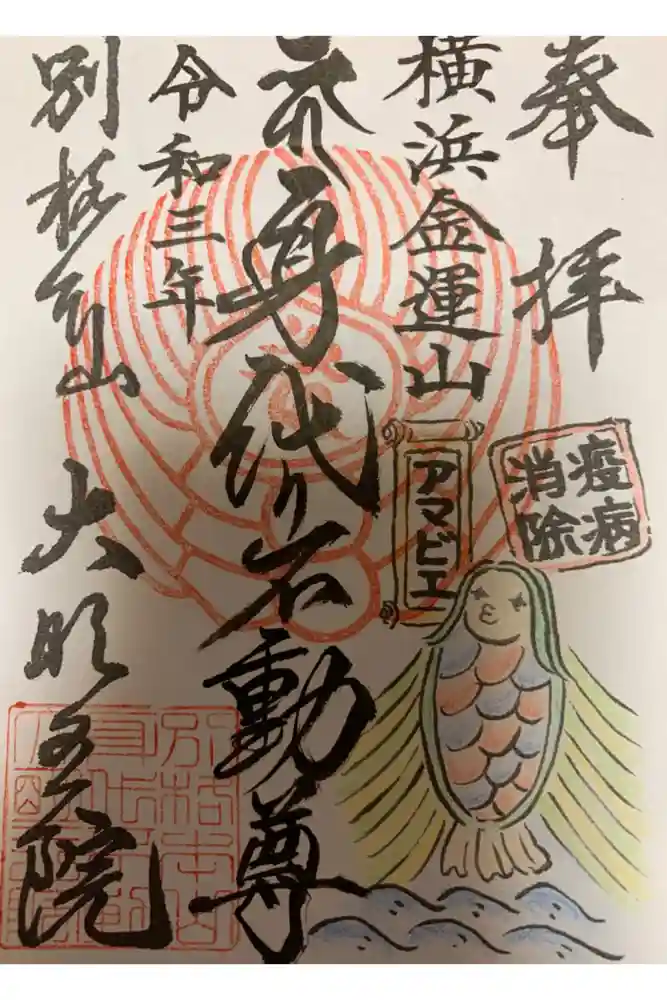 奉拝
横浜金運山
アマビエ
疫病
消除
身代り不動尊
令和三年
別格本山
大明王院